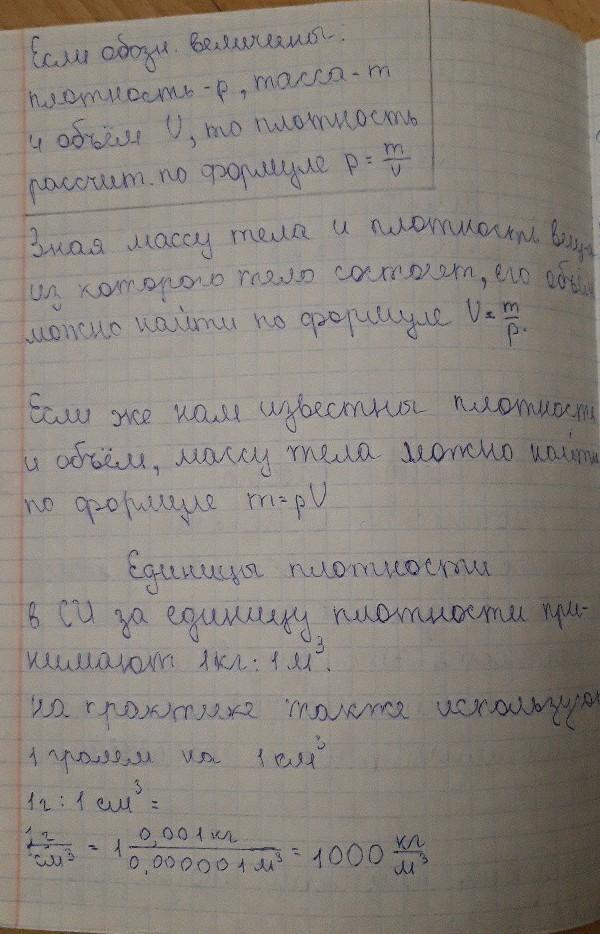 Если обозн. величины:
плотность - ρ, масса - m
и объём V, то плотность
рассчит. по формуле ρ = m/V
Зная массу тела и плотность вещ-а
из которого тело состоит, его объём
можно найти по формуле V = m/ρ.
Если же нам известны плотность
и объём, массу тела можно найти
по формуле m = ρV
Единицы плотности
в СИ за единицу плотности при-
нимают 1 кг : 1 м³.
на практике также используют
1 грамм на 1 см³
1г : 1 см³ =
1г/см³ = 1 0,001 кг/0,000001 м³ = 1000 кг/м³